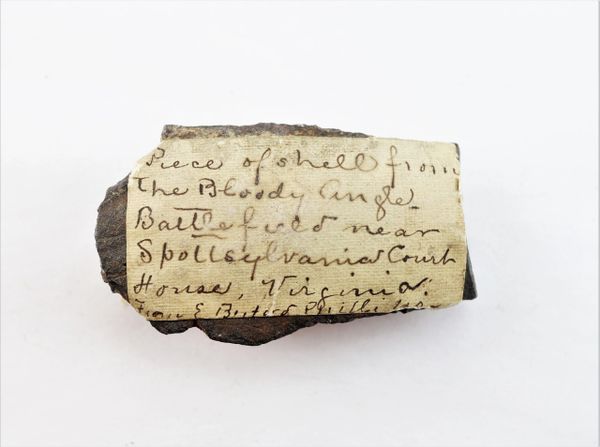 Piece of shell from
The Bloody Angle
Battlefield near
Spottsylvania Court
House, Virginia.
From E